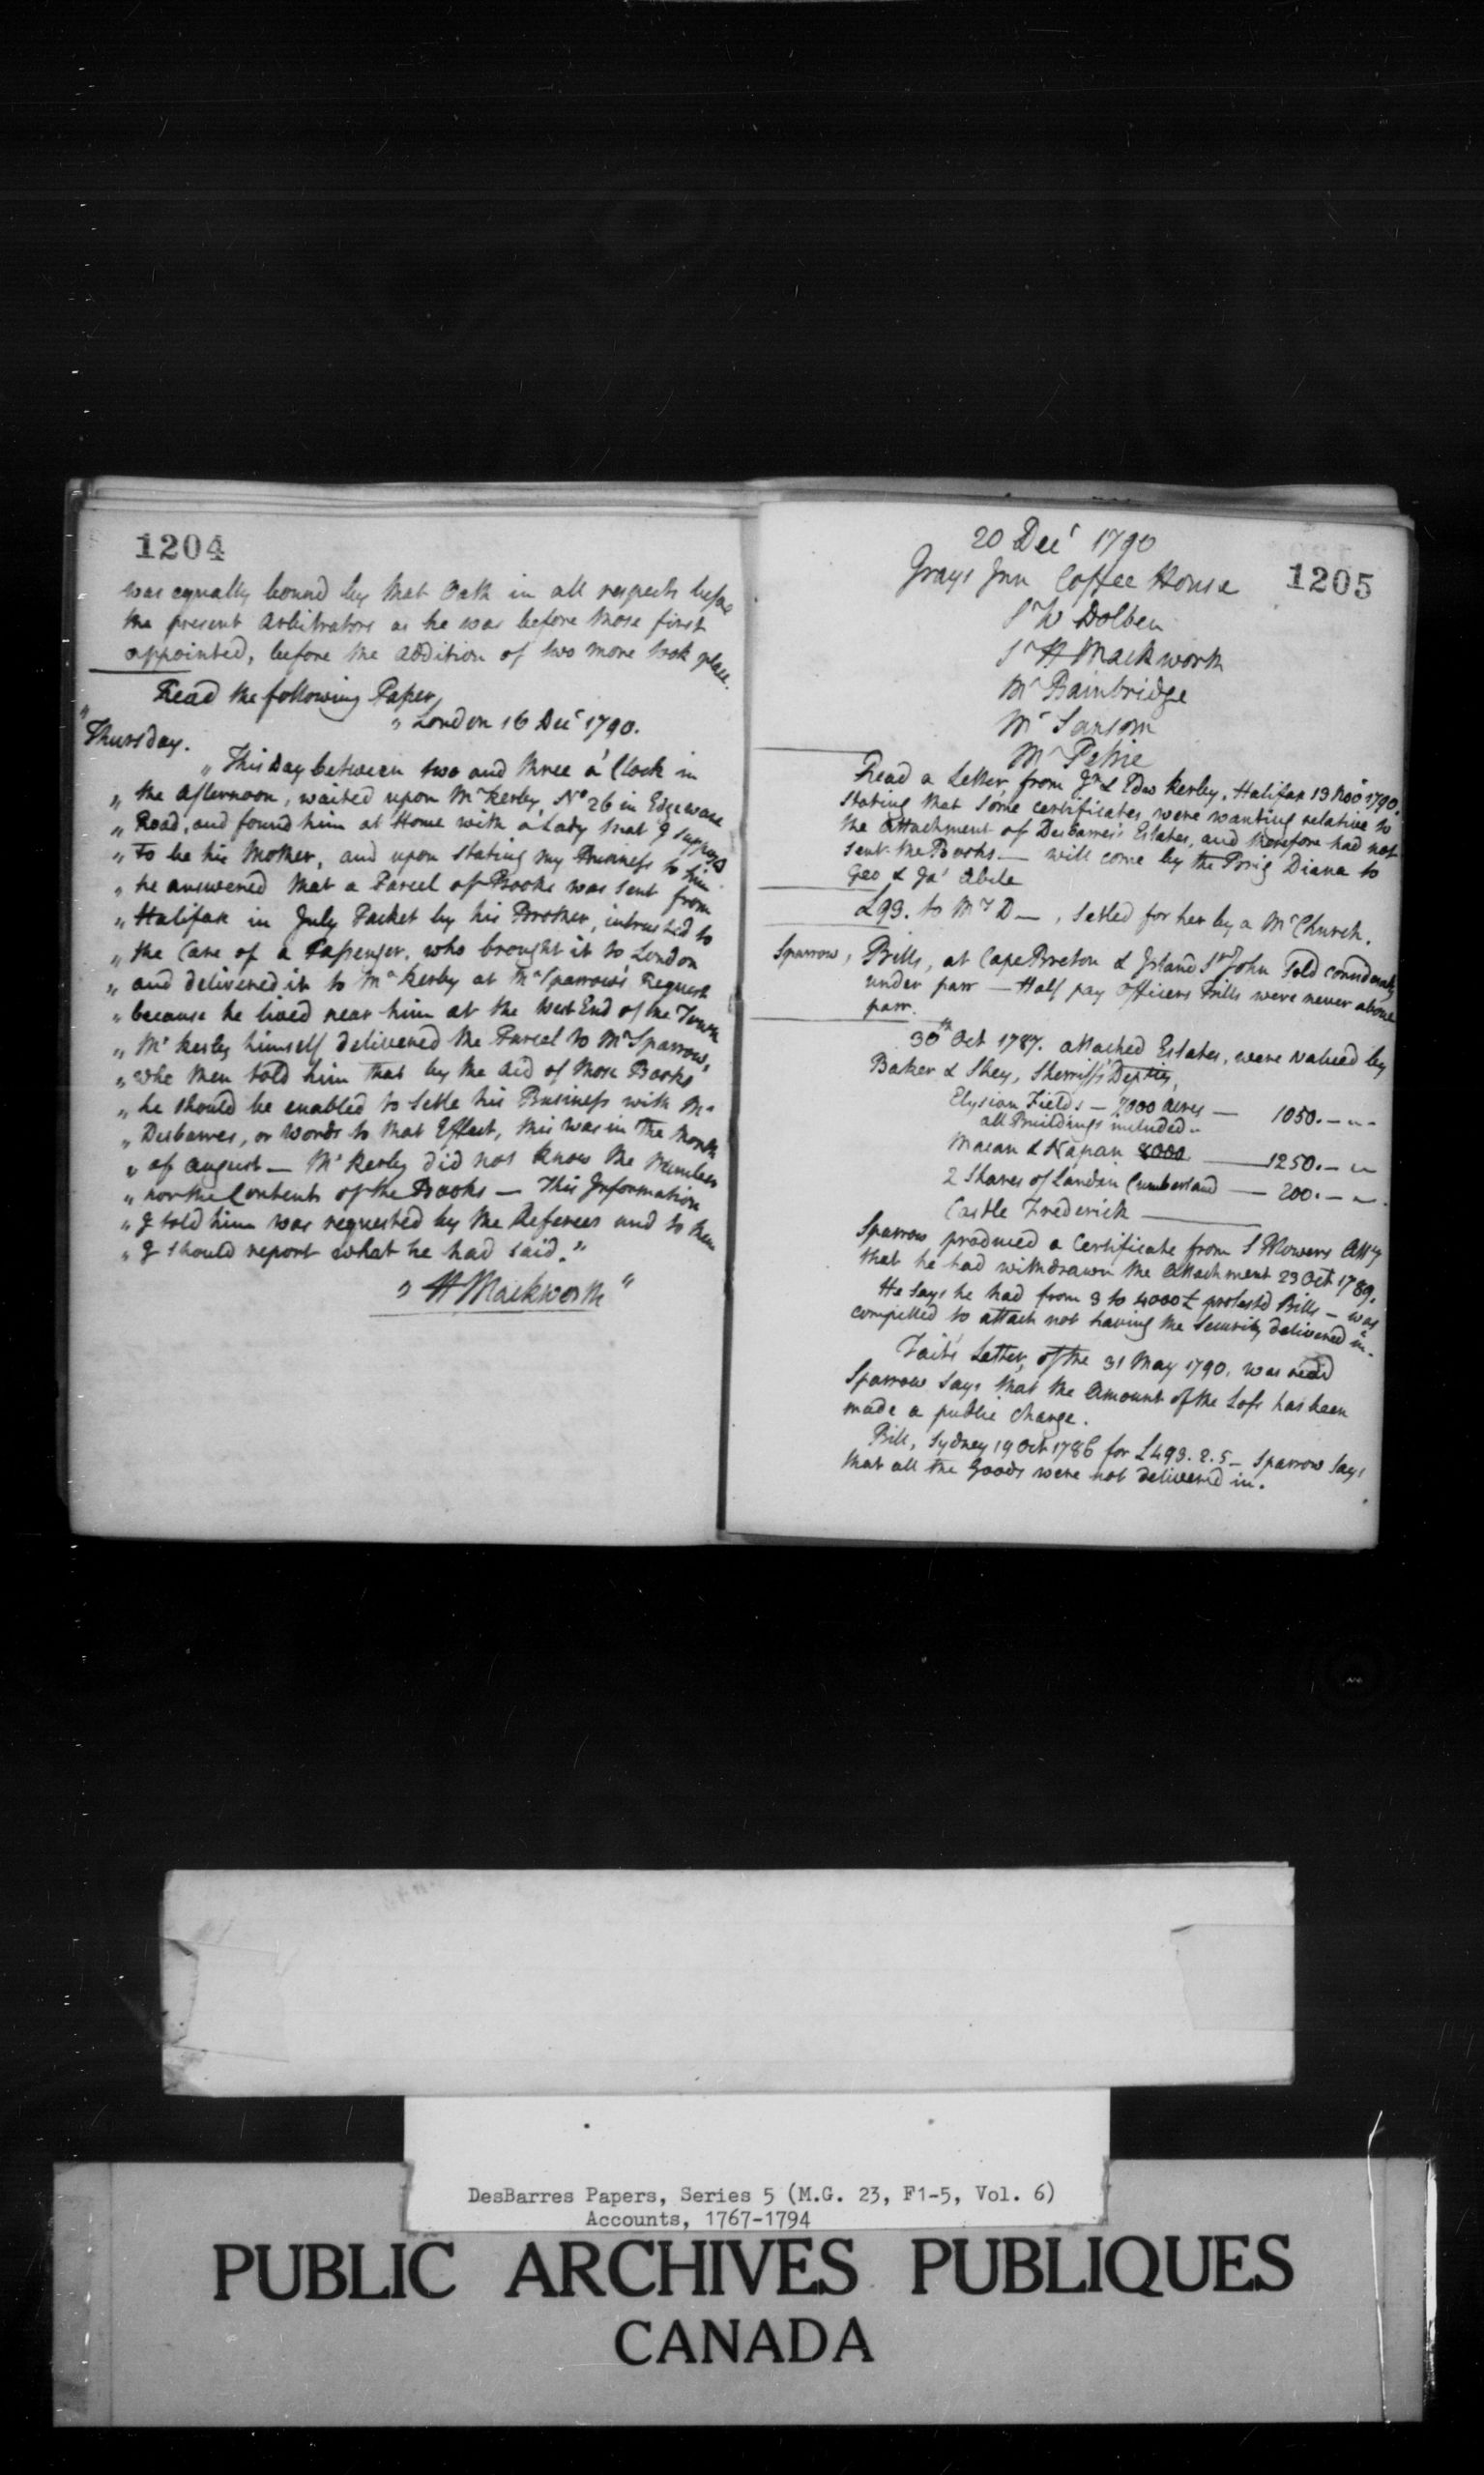 1204
was equally bound by that Oath in all respects before
the present Arbitrators as he was before those first
appointed, before the Addition of two more took place.
Read the following Paper,
" London 16 Decr 1790.
" Thursday.
" This Day between two and three o'Clock in
" the Afternoon, waited upon Mr Kerby, No 26 in Edgeware
" Road, and found him at Home with a Lady that I supposed
" to be his Mother, and upon stating my Business to him
" he answered that a Parcel of Books was sent from
" Halifax in July Packet by his Brother, intrusted to
" the Care of a Passenger, who brought it to London
" and delivered it to Mr Kerby at Mr Sparrow's Request
" because he lived near him at the West End of the Town
" Mr Kerby himself delivered the Parcel to Mr Sparrow,
" who then told him that by the Aid of those Books
" he should be enabled to settle his Business with Mr
" Desbarres, or words to that Effect, this was in the Month
" of August — Mr Kerby did not know the Number
" nor the Contents of the Books — This Information
" I told him was requested by the Referees and to them
" I should report what he had said."
" H Mackworth "
1205
20 Decr 1790
Grays Inn Coffee House
Sr W Dolben
Sr H Mackworth
Mr Bainbridge
Mr Sansom
Mr Petrie
Read a Letter, from Jn & Edw Kerby, Halifax 13 Nov 1790.
stating that some certificates were wanting relative to
the Attachment of Desbarres's Estates, and therefore had not
sent the Books — will come by the Brig Diana to
Geo & Jas Abele
£93. to Mrs D—, setled for her by a Mr Church.
Sparrow, Bills, at Cape Breton & Island St John Sold considerably
under parr — Half pay Officers Bills were never above
parr.
30th Oct 1787. attached Estates, were valued by
Baker & Shey, Sherriff's Depties,
Elysian Fields — 7000 acres — 1050. — " —
all Buildings included "
Macan & Napan 8000 — 1250. — "
2 Shares of Land in Cumberland — 200. — "
Castle Frederick —
Sparrow produced a Certificate from S Blowers Atty
that he had withdrawn the Attachment 23 Oct 1789.
He says he had from 3 to 4000£ protested Bills — was
compelled to attach not having the Security delivered in.
Tait's Letter, of the 31 May 1790. was read
Sparrow says that the Amount of the Loss has been
made a public charge.
Bill, Sydney 19 Oct 1786 for £493. 2. 5 — Sparrow says
that all the Goods were not delivered in.
DesBarres Papers, Series 5 (M.G. 23, F1-5, Vol. 6)
Accounts, 1767-1794
PUBLIC ARCHIVES PUBLIQUES
CANADA